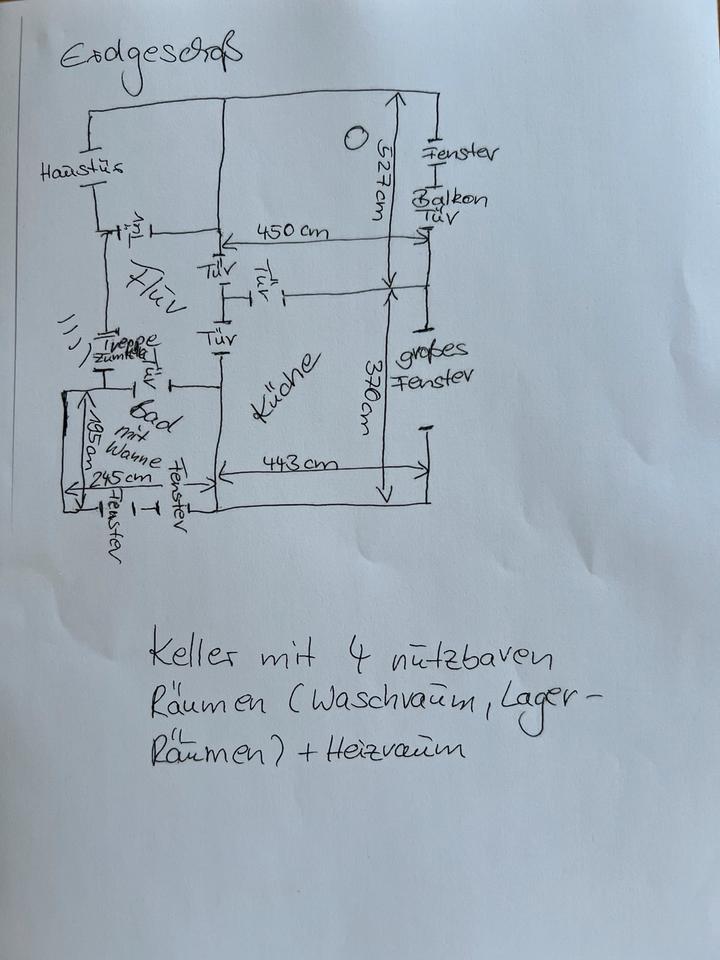 Erdgeschoß
Haustür
527cm
Fenster
Balkon
Tür
Tür
450 cm
Flur
Tür
Tür
Treppe
Tür
Tür
großes
Fenster
Küche
370cm
Bad
mit
Wanne
195cm
245cm
443 cm
Fenster
Fenster
Keller mit 4 nutzbaren
Räumen (Waschraum, Lager-
Räumen) + Heizraum